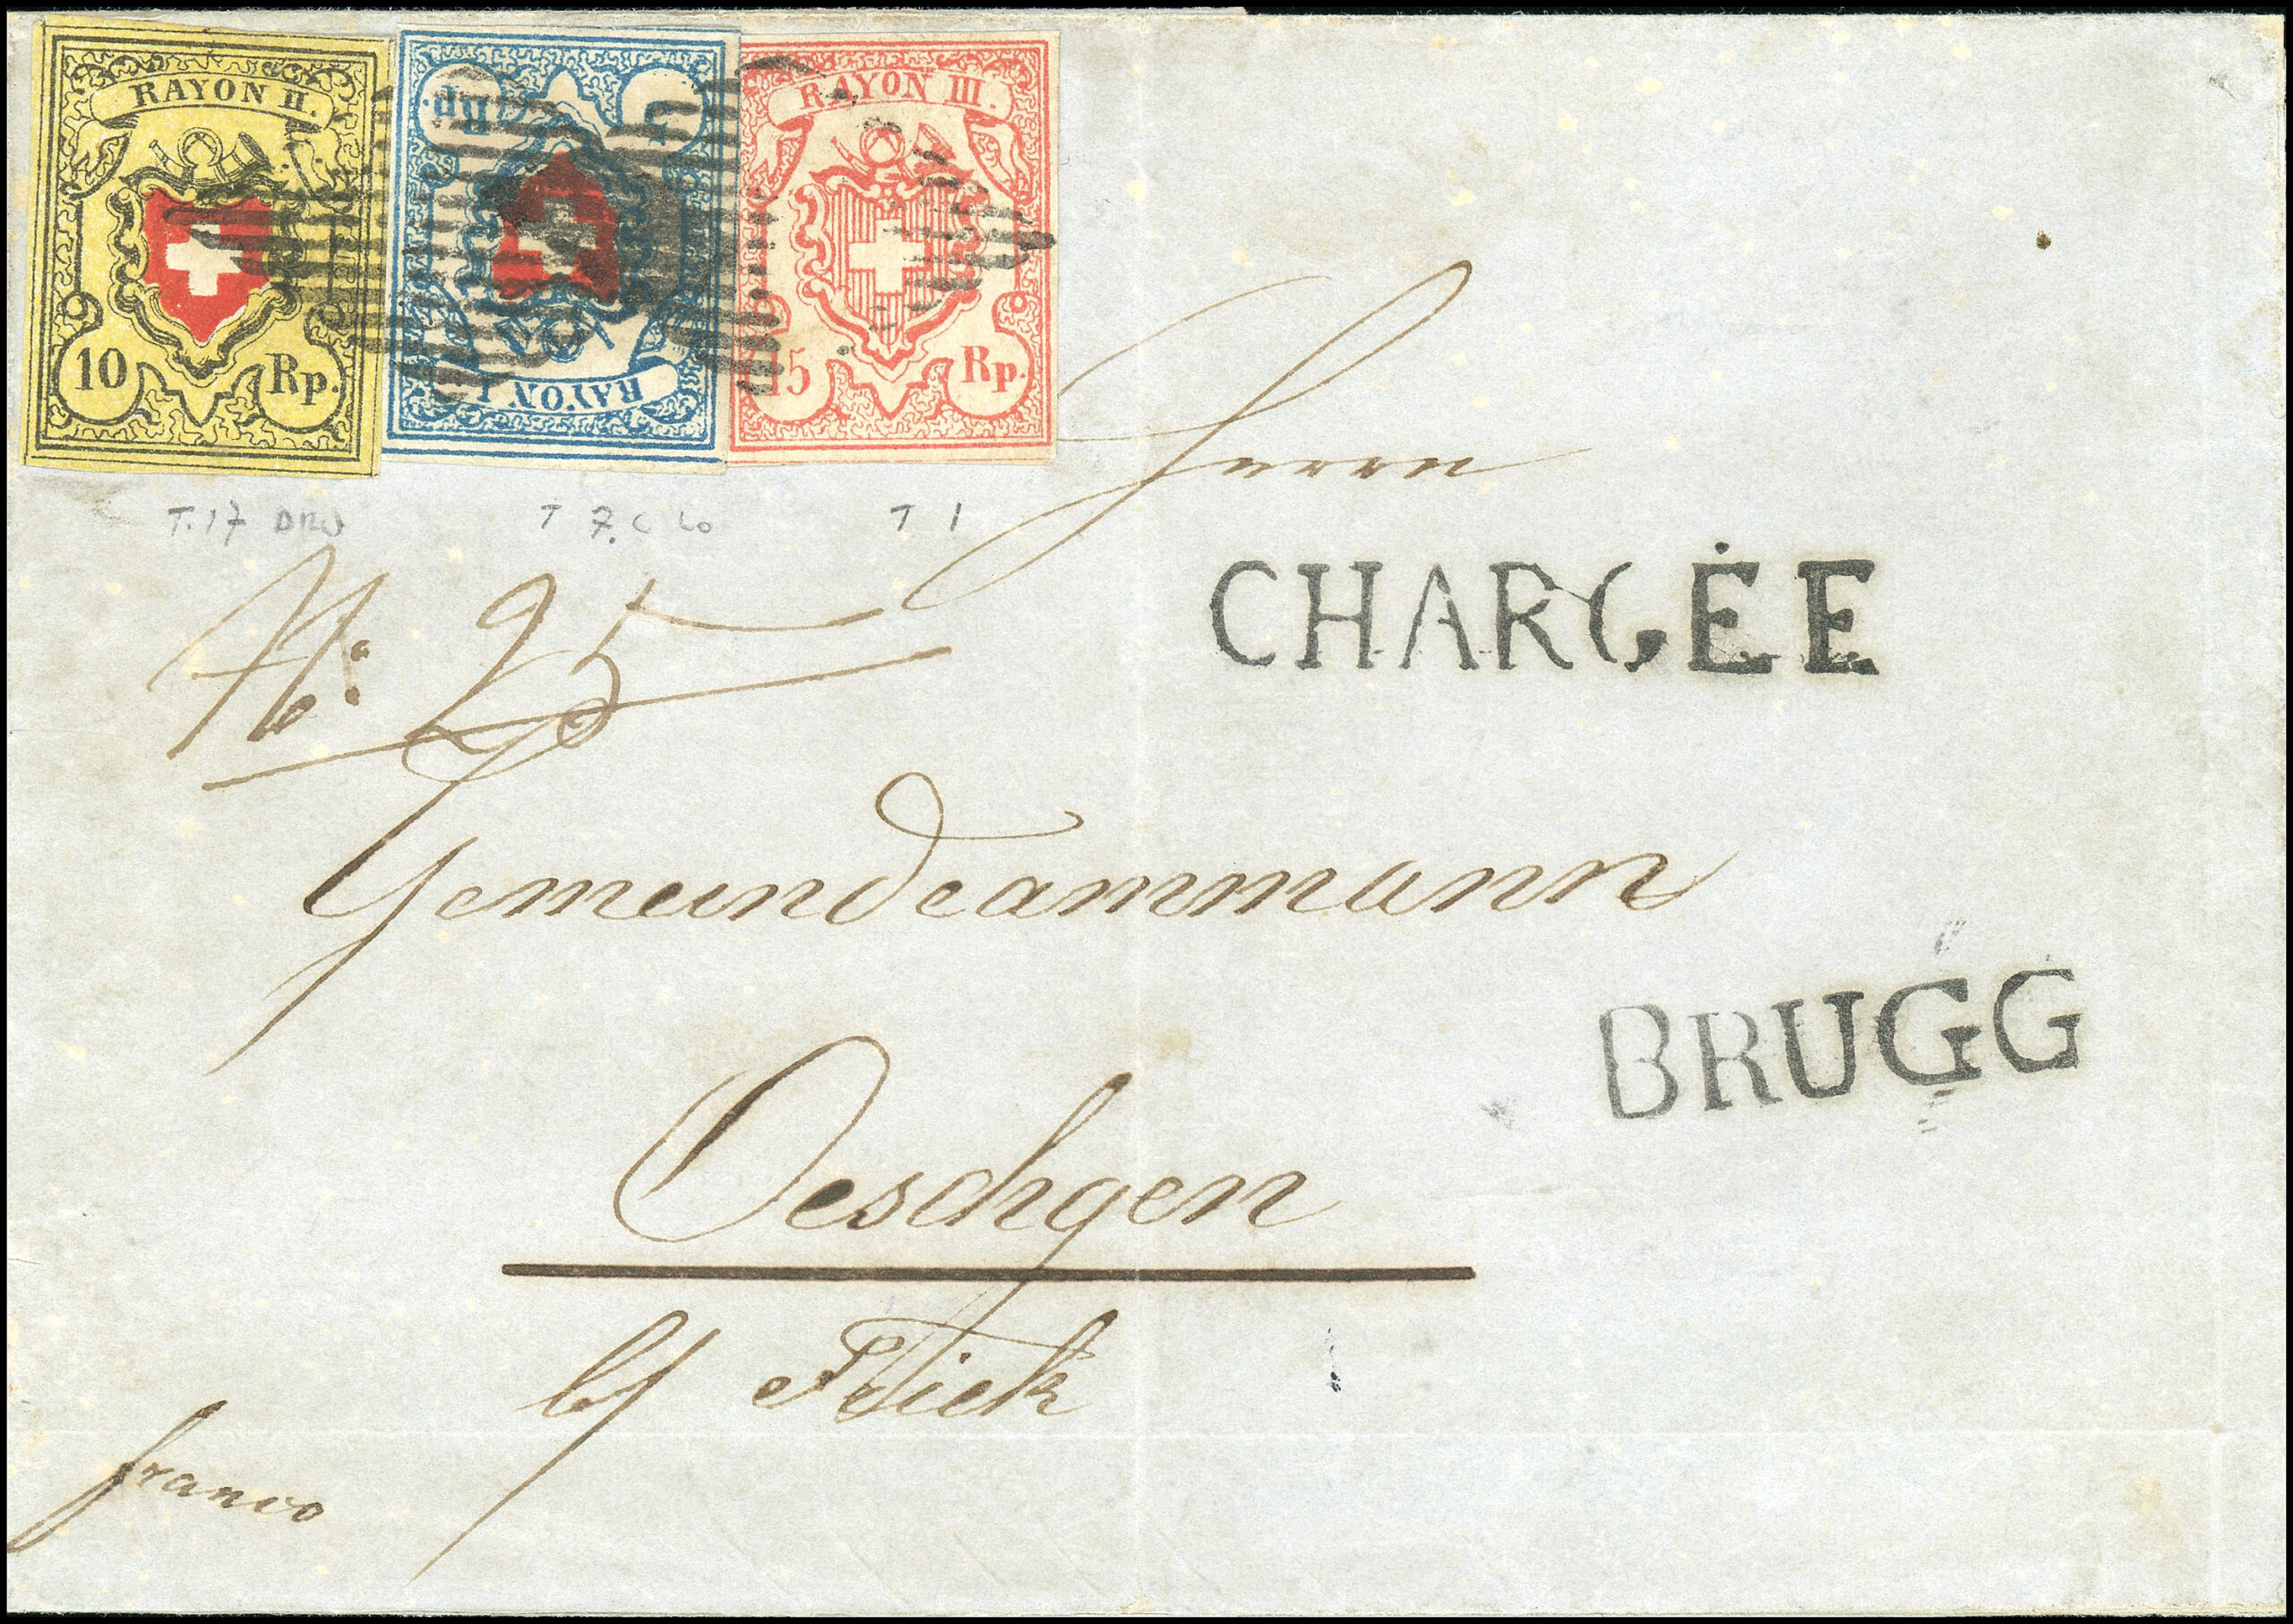 RAYON II.
10 Rp.
RAYON I
5 Rp.
RAYON III.
15 Rp.
T.17 DRU
T 7. C LO
T 1
Herrn
CHARGÉE
No: 25
Gemeindeammann
BRUGG
Oeschgen
b/ Frick
franco